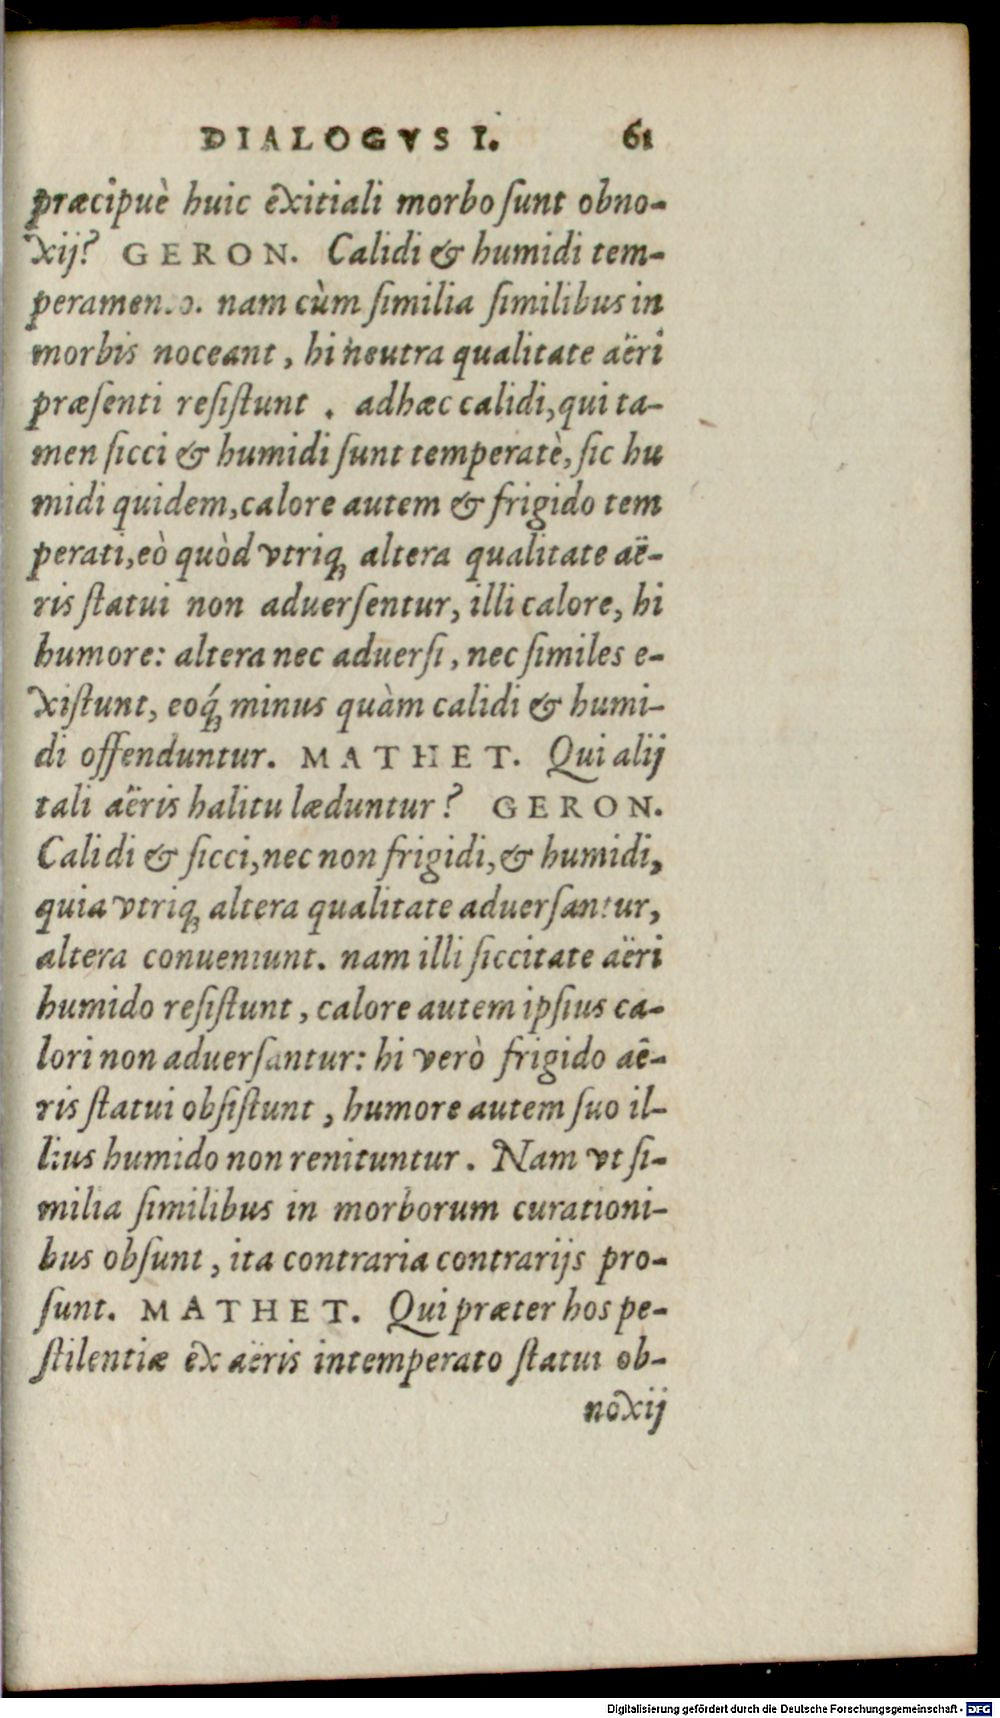 DIALOGVS I. 61
præcipuè huic exitiali morbo ſunt obno-
xij? GERON. Calidi & humidi tem-
peramen.o. nam cùm ſimilia ſimilibus in
morbis noceant, hi neutra qualitate aëri
præſenti reſiſtunt. adhæc calidi, qui ta-
men ſicci & humidi ſunt temperatè, ſic hu
midi quidem, calore autem & frigido tem
perati, eò quòd vtriq; altera qualitate aë-
ris ſtatui non aduerſentur, illi calore, hi
humore: altera nec aduerſi, nec ſimiles e-
xiſtunt, eoq́; minus quàm calidi & humi-
di offenduntur. MATHET. Qui alij
tali aëris halitu læduntur? GERON.
Calidi & ſicci, nec non frigidi, & humidi,
quia vtriq; altera qualitate aduerſantur,
altera conueniunt. nam illi ſiccitate aëri
humido reſiſtunt, calore autem ipſius ca-
lori non aduerſantur: hi verò frigido aë-
ris ſtatui obſiſtunt, humore autem ſuo il-
lius humido non renituntur. Nam vt ſi-
milia ſimilibus in morborum curationi-
bus obſunt, ita contraria contrarijs pro-
ſunt. MATHET. Qui præter hos pe-
ſtilentiæ ex aëris intemperato ſtatui ob-
noxij
Digitalisierung gefördert durch die Deutsche Forschungsgemeinschaft - DFG